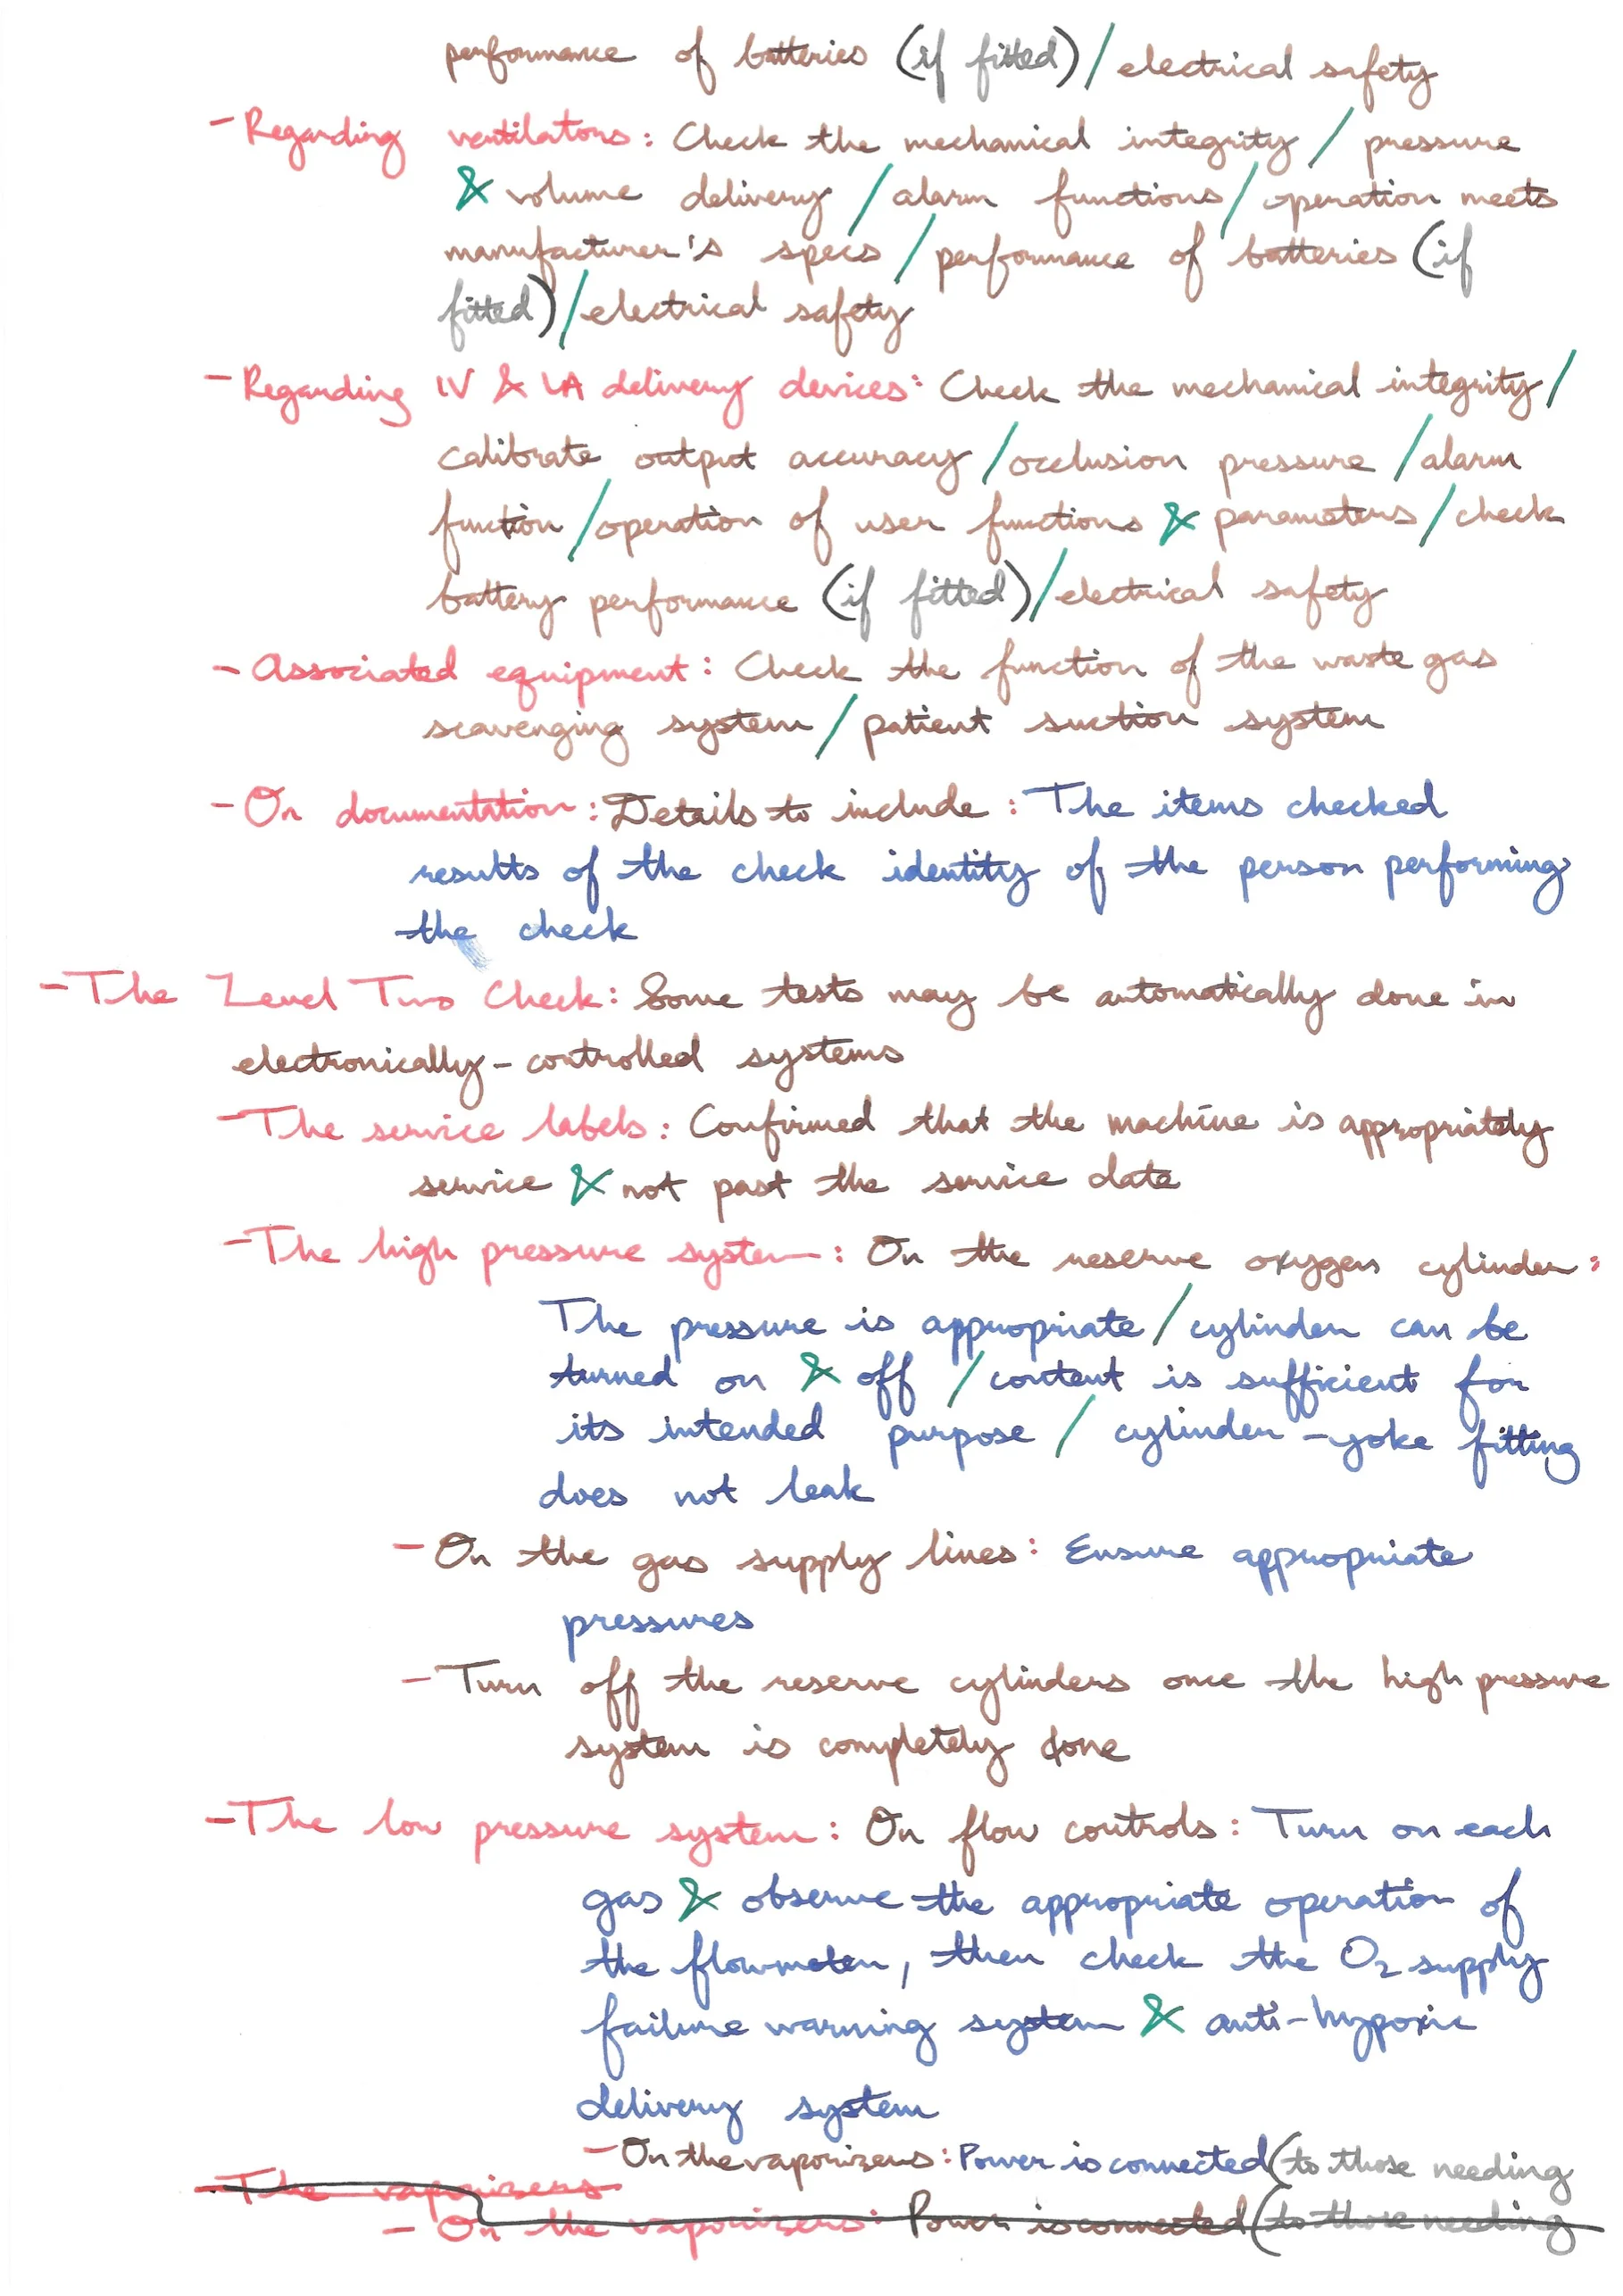 performance of batteries (if fitted) / electrical safety
- Regarding ventilators: Check the mechanical integrity / pressure
& volume delivery / alarm functions / operation meets
manufacturer's specs / performance of batteries (if
fitted) / electrical safety
- Regarding IV & LA delivery devices: Check the mechanical integrity /
calibrate output accuracy / occlusion pressure / alarm
function / operation of user functions & parameters / check
battery performance (if fitted) / electrical safety
- Associated equipment: Check the function of the waste gas
scavenging system / patient suction system
- On documentation: Details to include: The items checked
results of the check identity of the person performing
the check
- The Level Two Check: Some tests may be automatically done in
electronically-controlled systems
- The service labels: Confirmed that the machine is appropriately
service & not past the service date
- The high pressure system: On the reserve oxygen cylinder:
The pressure is appropriate / cylinder can be
turned on & off / content is sufficient for
its intended purpose / cylinder-yoke fitting
does not leak
- On the gas supply lines: Ensure appropriate
pressures
- Turn off the reserve cylinders once the high pressure
system is completely done
- The low pressure system: On flow controls: Turn on each
gas & observe the appropriate operation of
the flowmeter, then check the O2 supply
failure warning system & anti-hypoxic
delivery system
- On the vaporizers: Power is connected (to those needing
- The vaporizers
- On the vaporizers: Power is connected (to those needing